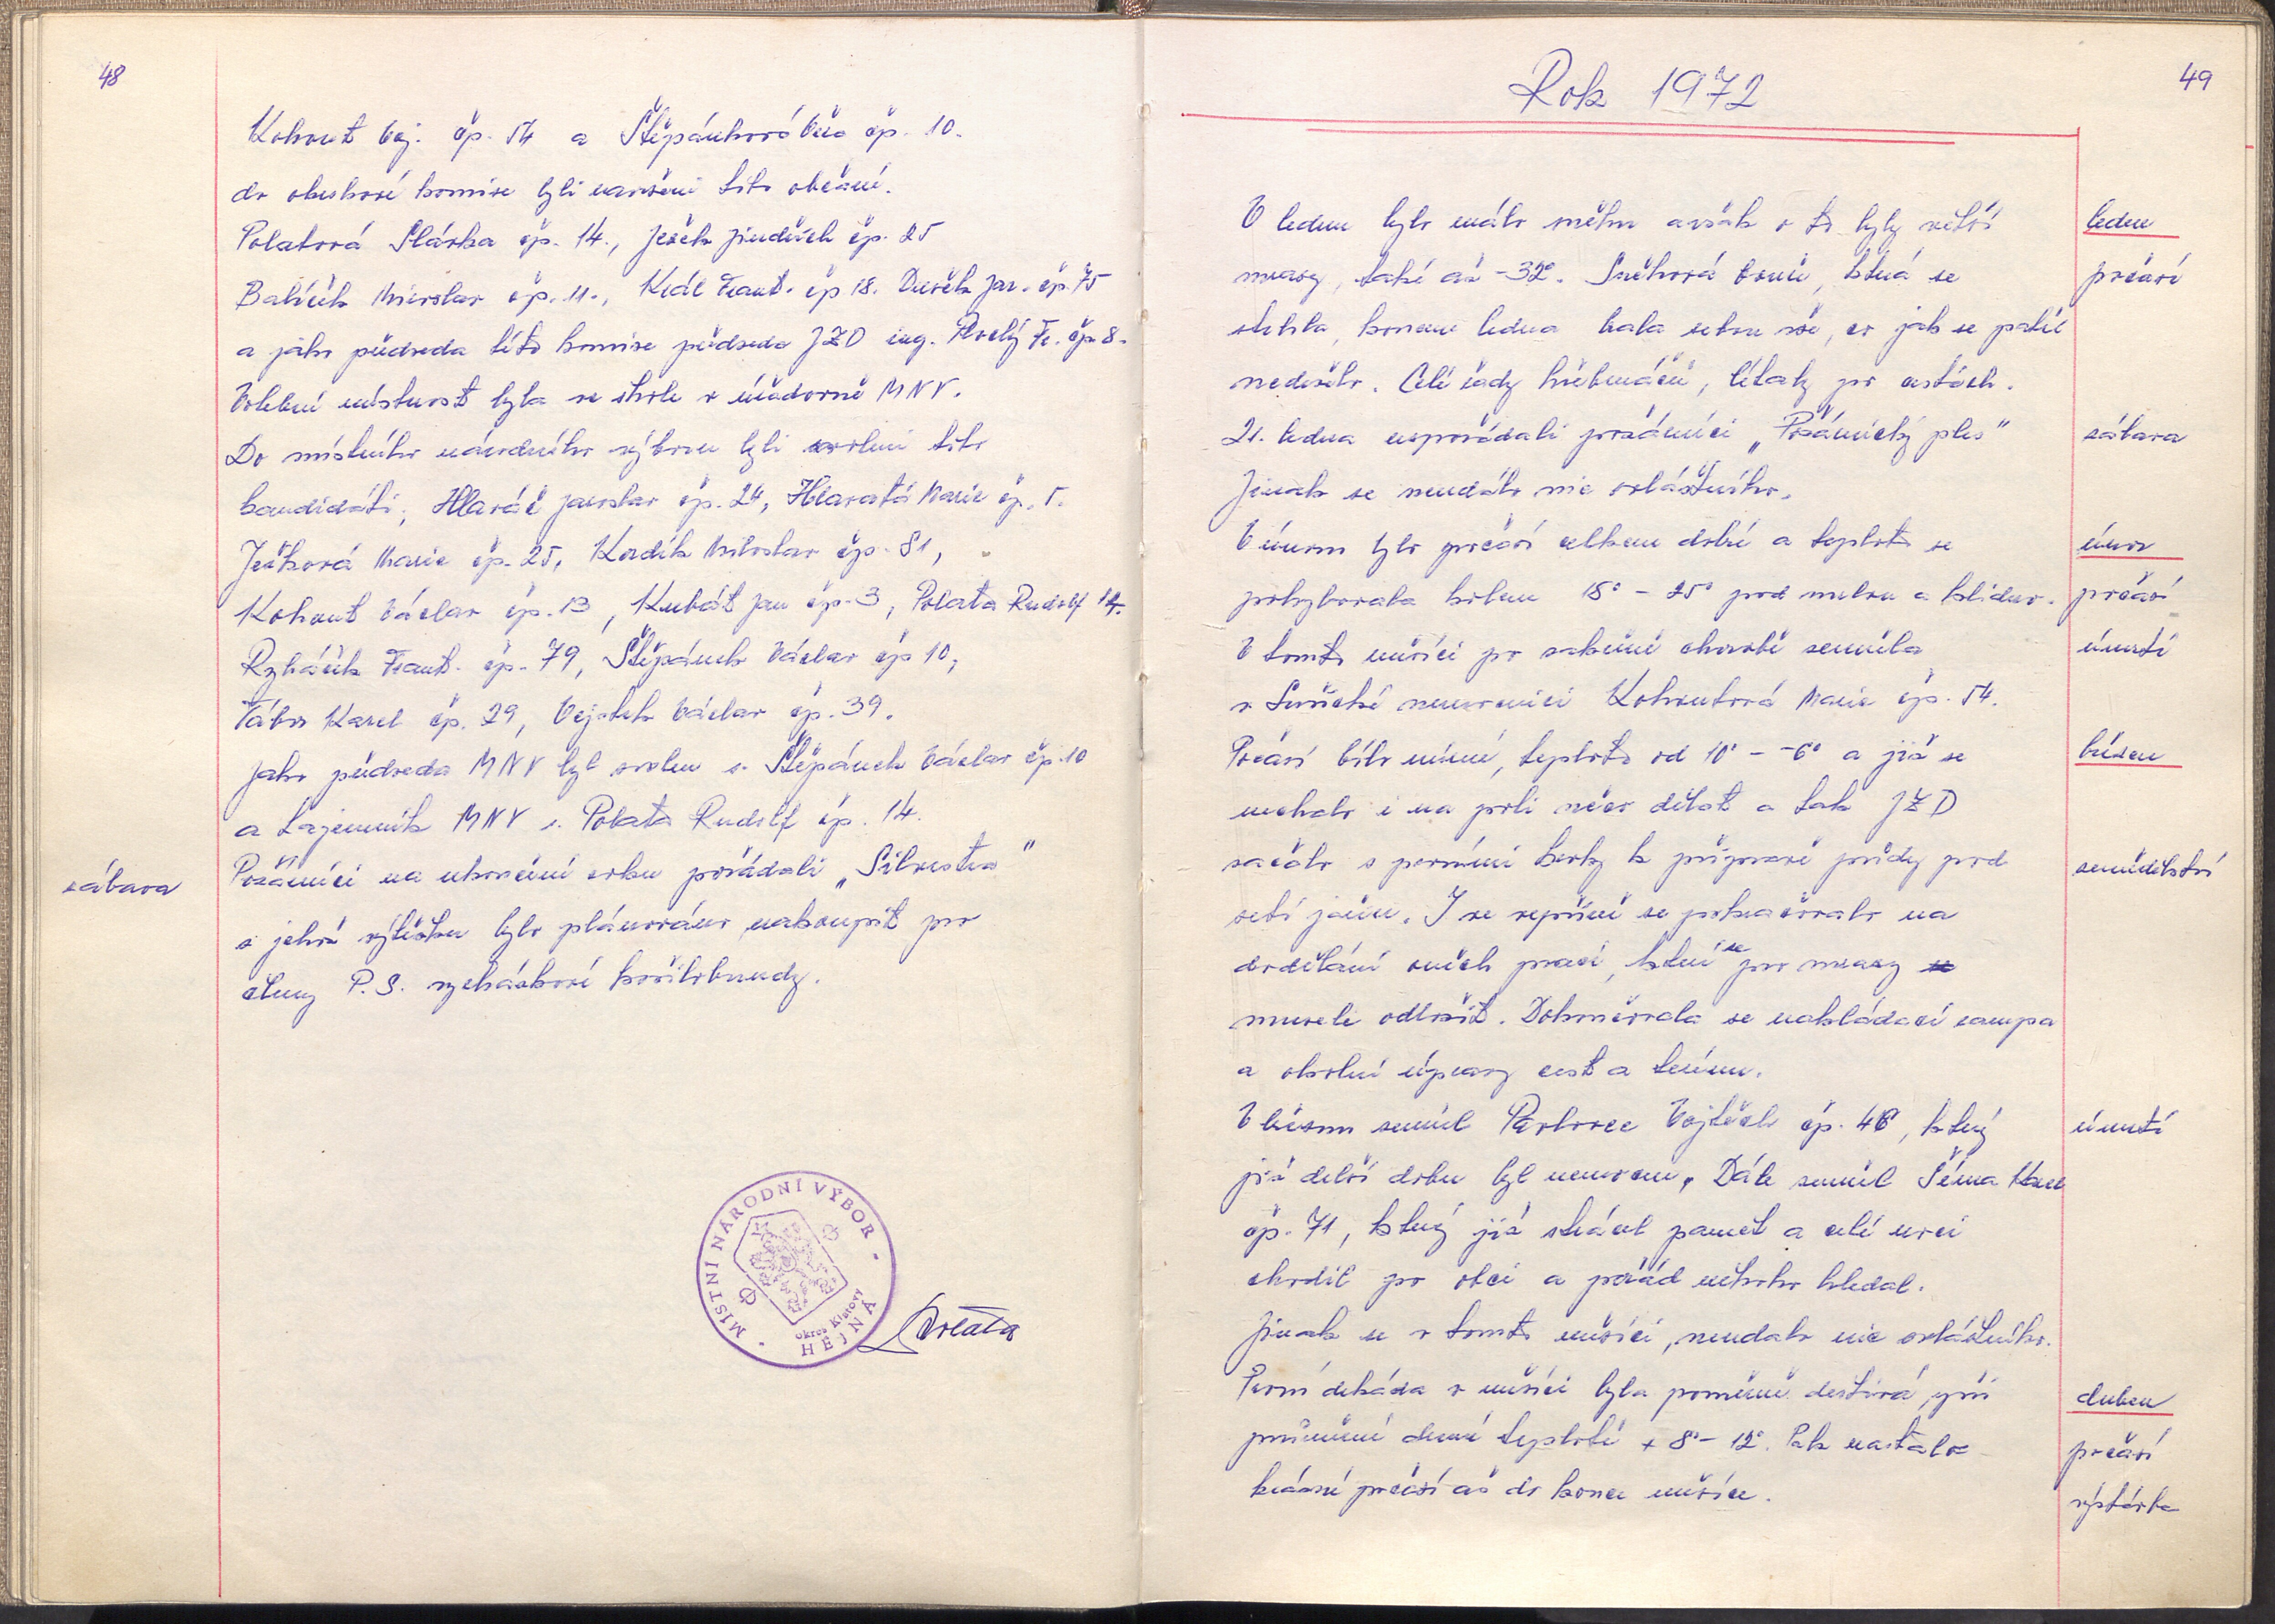 48
Kohout Voj. čp. 54 a Štěpánková Věra čp. 10.
do okrskové komise byli navrženi tito občané.
Polatová Slávka čp. 14., Ješek Jindřich čp. 25
Balíček Miroslav čp. 11., Král Frant. čp 18. Dušek Jar. čp. 75
a jako předseda této komise předseda JZD ing. Fr. čp 8.
Volební místnost byla ve škole v úřadovně MNV.
Do místního národního výboru byli zvoleni tito
kandidáti; Hlaváč Jaroslav čp. 24, Hlavatá Marie čp. 5.
Ješková Marie čp. 25, Kordík Miloslav čp. 81,
Kohout Václav čp. 13, Kubát Jan čp. 3, Polata Rudolf 14.
Rybáček Frant. čp. 79, Štěpánek Václav čp 10,
Tábor Karel čp. 29, Vojtek Václav čp. 39.
Jako předseda MNV byl zvolen s. Štěpánek Václav čp. 10
a tajemník MNV s. Polata Rudolf čp. 14.
zábava
Požárníci na ukončení roku pořádali „Silvestra"
z jehož výtěžku bylo plánováno nakoupit pro
členy P.S. vycházkové košilobundy.
MÍSTNÍ NÁRODNÍ VÝBOR
okres Klatovy
HEJNÁ
Polata
49
Rok 1972
V lednu bylo málo sněhu avšak o to byly větší
leden
mrazy, také až -32°. Sněhová bouře, která se
počasí
strhla, koncem ledna brala sebou vše, co jak se patří
nedrželo. Celé řady hřebenáčů, lítaly po cestách.
21. ledna uspořádali požárníci „Požárnický ples"
zábava
Jinak se neudálo nic zvláštního.
V únoru bylo počasí celkem dobré a teplota se
únor
pohybovala kolem 15° - 25° pod nulou a klidno.
počasí
V tomto měsíci po zákeřné chorobě zemřela
úmrtí
v Sušické nemocnici Kohoutová Marie čp. 54.
Počasí bílo mírné, teplota od 10° - -6° a již se
březen
nechalo i na poli něco dělat a tak JZD
začalo s prvními kroky k přípravě půdy pod
zemědělství
setí jařin. I ve vepříně se pokračovalo na
dodělání oněch prací, které se pro mrazy
musely odložit. Dokončovala se nakládací rampa
a okolní úpravy cest a terénu.
V březnu zemřel Pavlovec Vojtěch čp. 46, který
úmrtí
již delší dobu byl nemocen. Dále zemřel Šíma Karel
čp. 71, který již ztrácel paměť a celé noci
chodil po obci a pořád někoho hledal.
Jinak se v tomto měsíci, neudálo nic zvláštního.
První dekáda v měsíci byla poměrně deštivá, při
duben
průměrné denní teplotě + 8° - 12°. Pak nastalo
počasí
krásné počasí až do konce měsíce.
výstavba